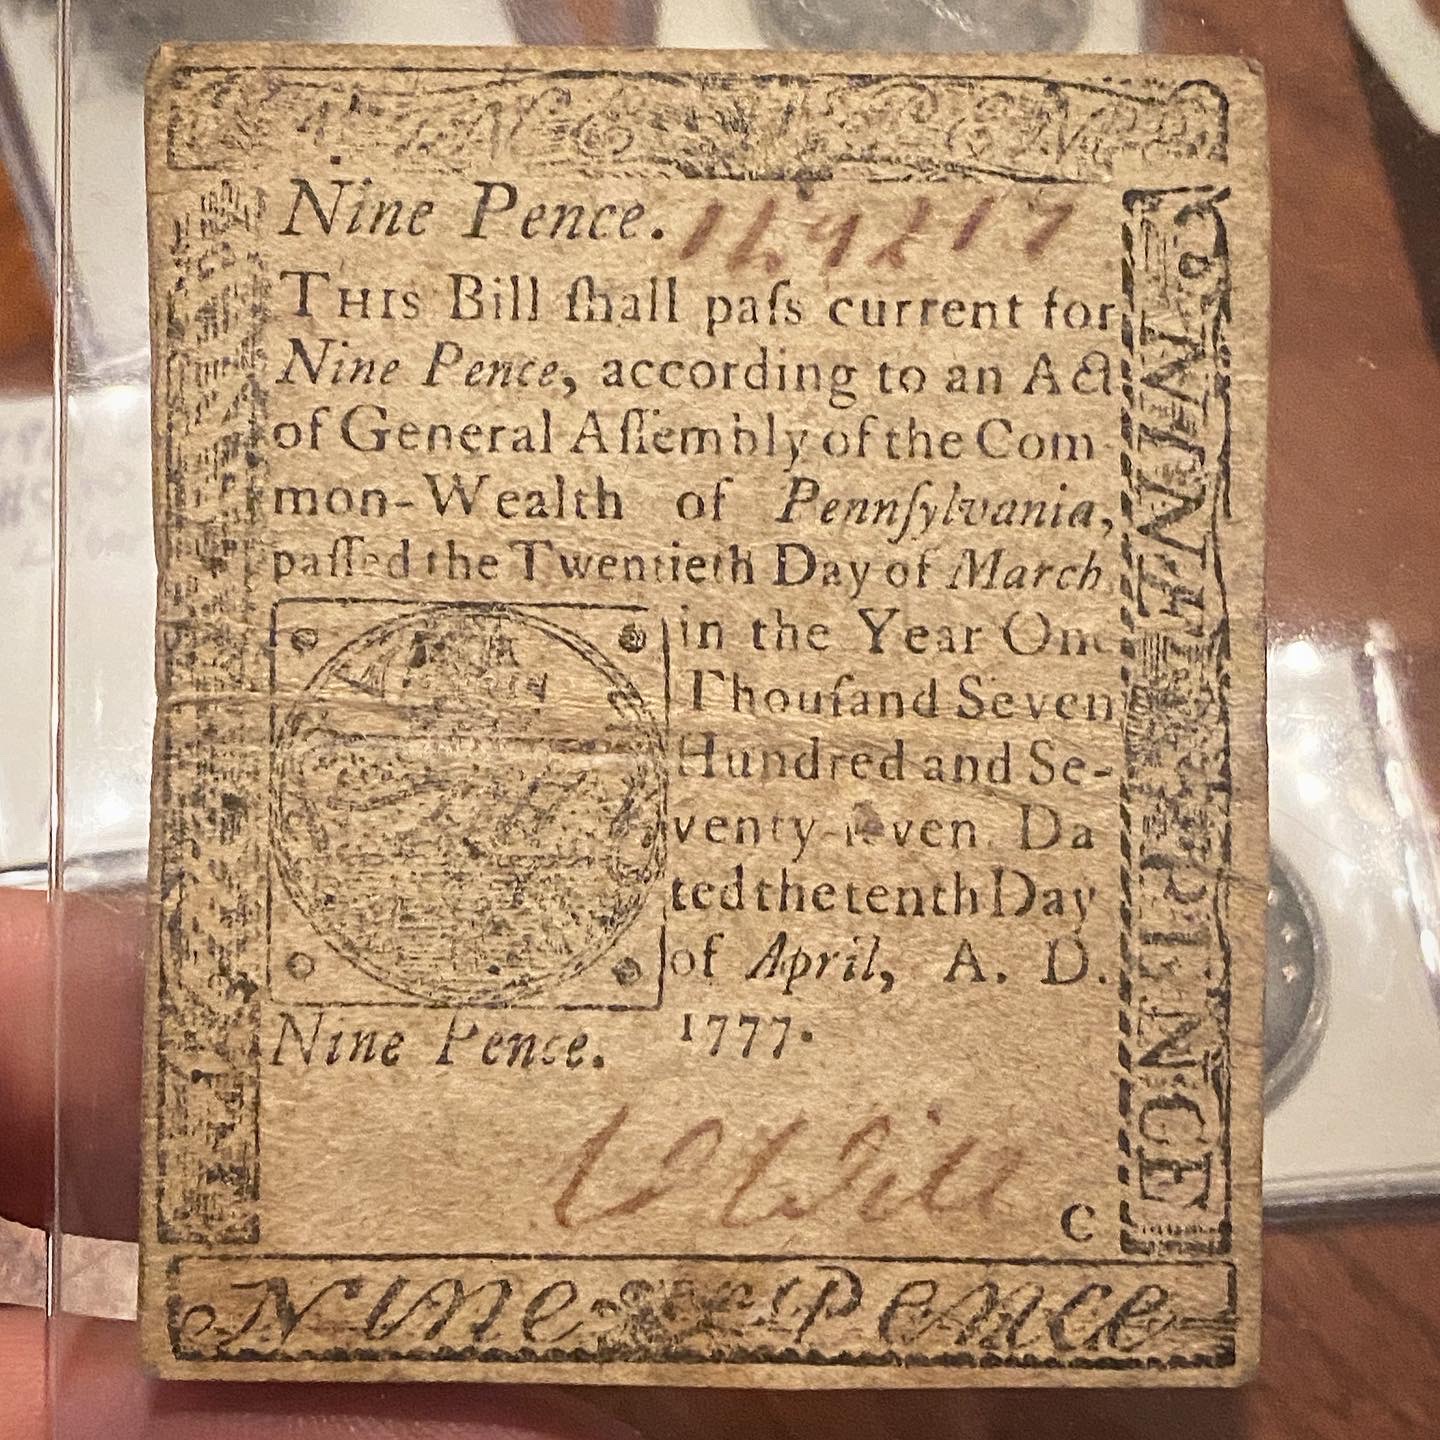 Nine Pence.
THIS Bill ſhall paſs current for
Nine Pence, according to an Act
of General Aſſembly of the Com
mon-Wealth of Pennſylvania,
paſſed the Twentieth Day of March
in the Year One
Thouſand Seven
Hundred and Se-
venty-ſeven. Da
ted the tenth Day
of April, A. D.
1777.
Nine Pence.
C
Nine Pence
NINE PENCE